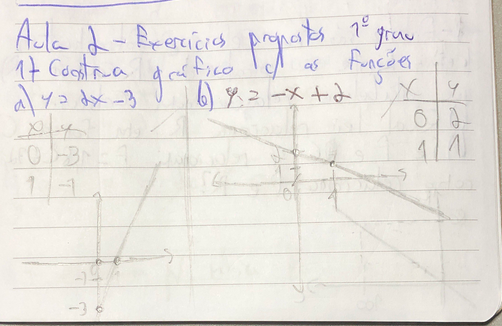 Aula 2 - Exercícios propostos 1º grau
1- Construa gráfico c/ as funções
a) y = 2x - 3
b) y = -x + 2
x y
0 -3
1 -1
x y
0 2
1 1
2
1
0
1
-1
-3